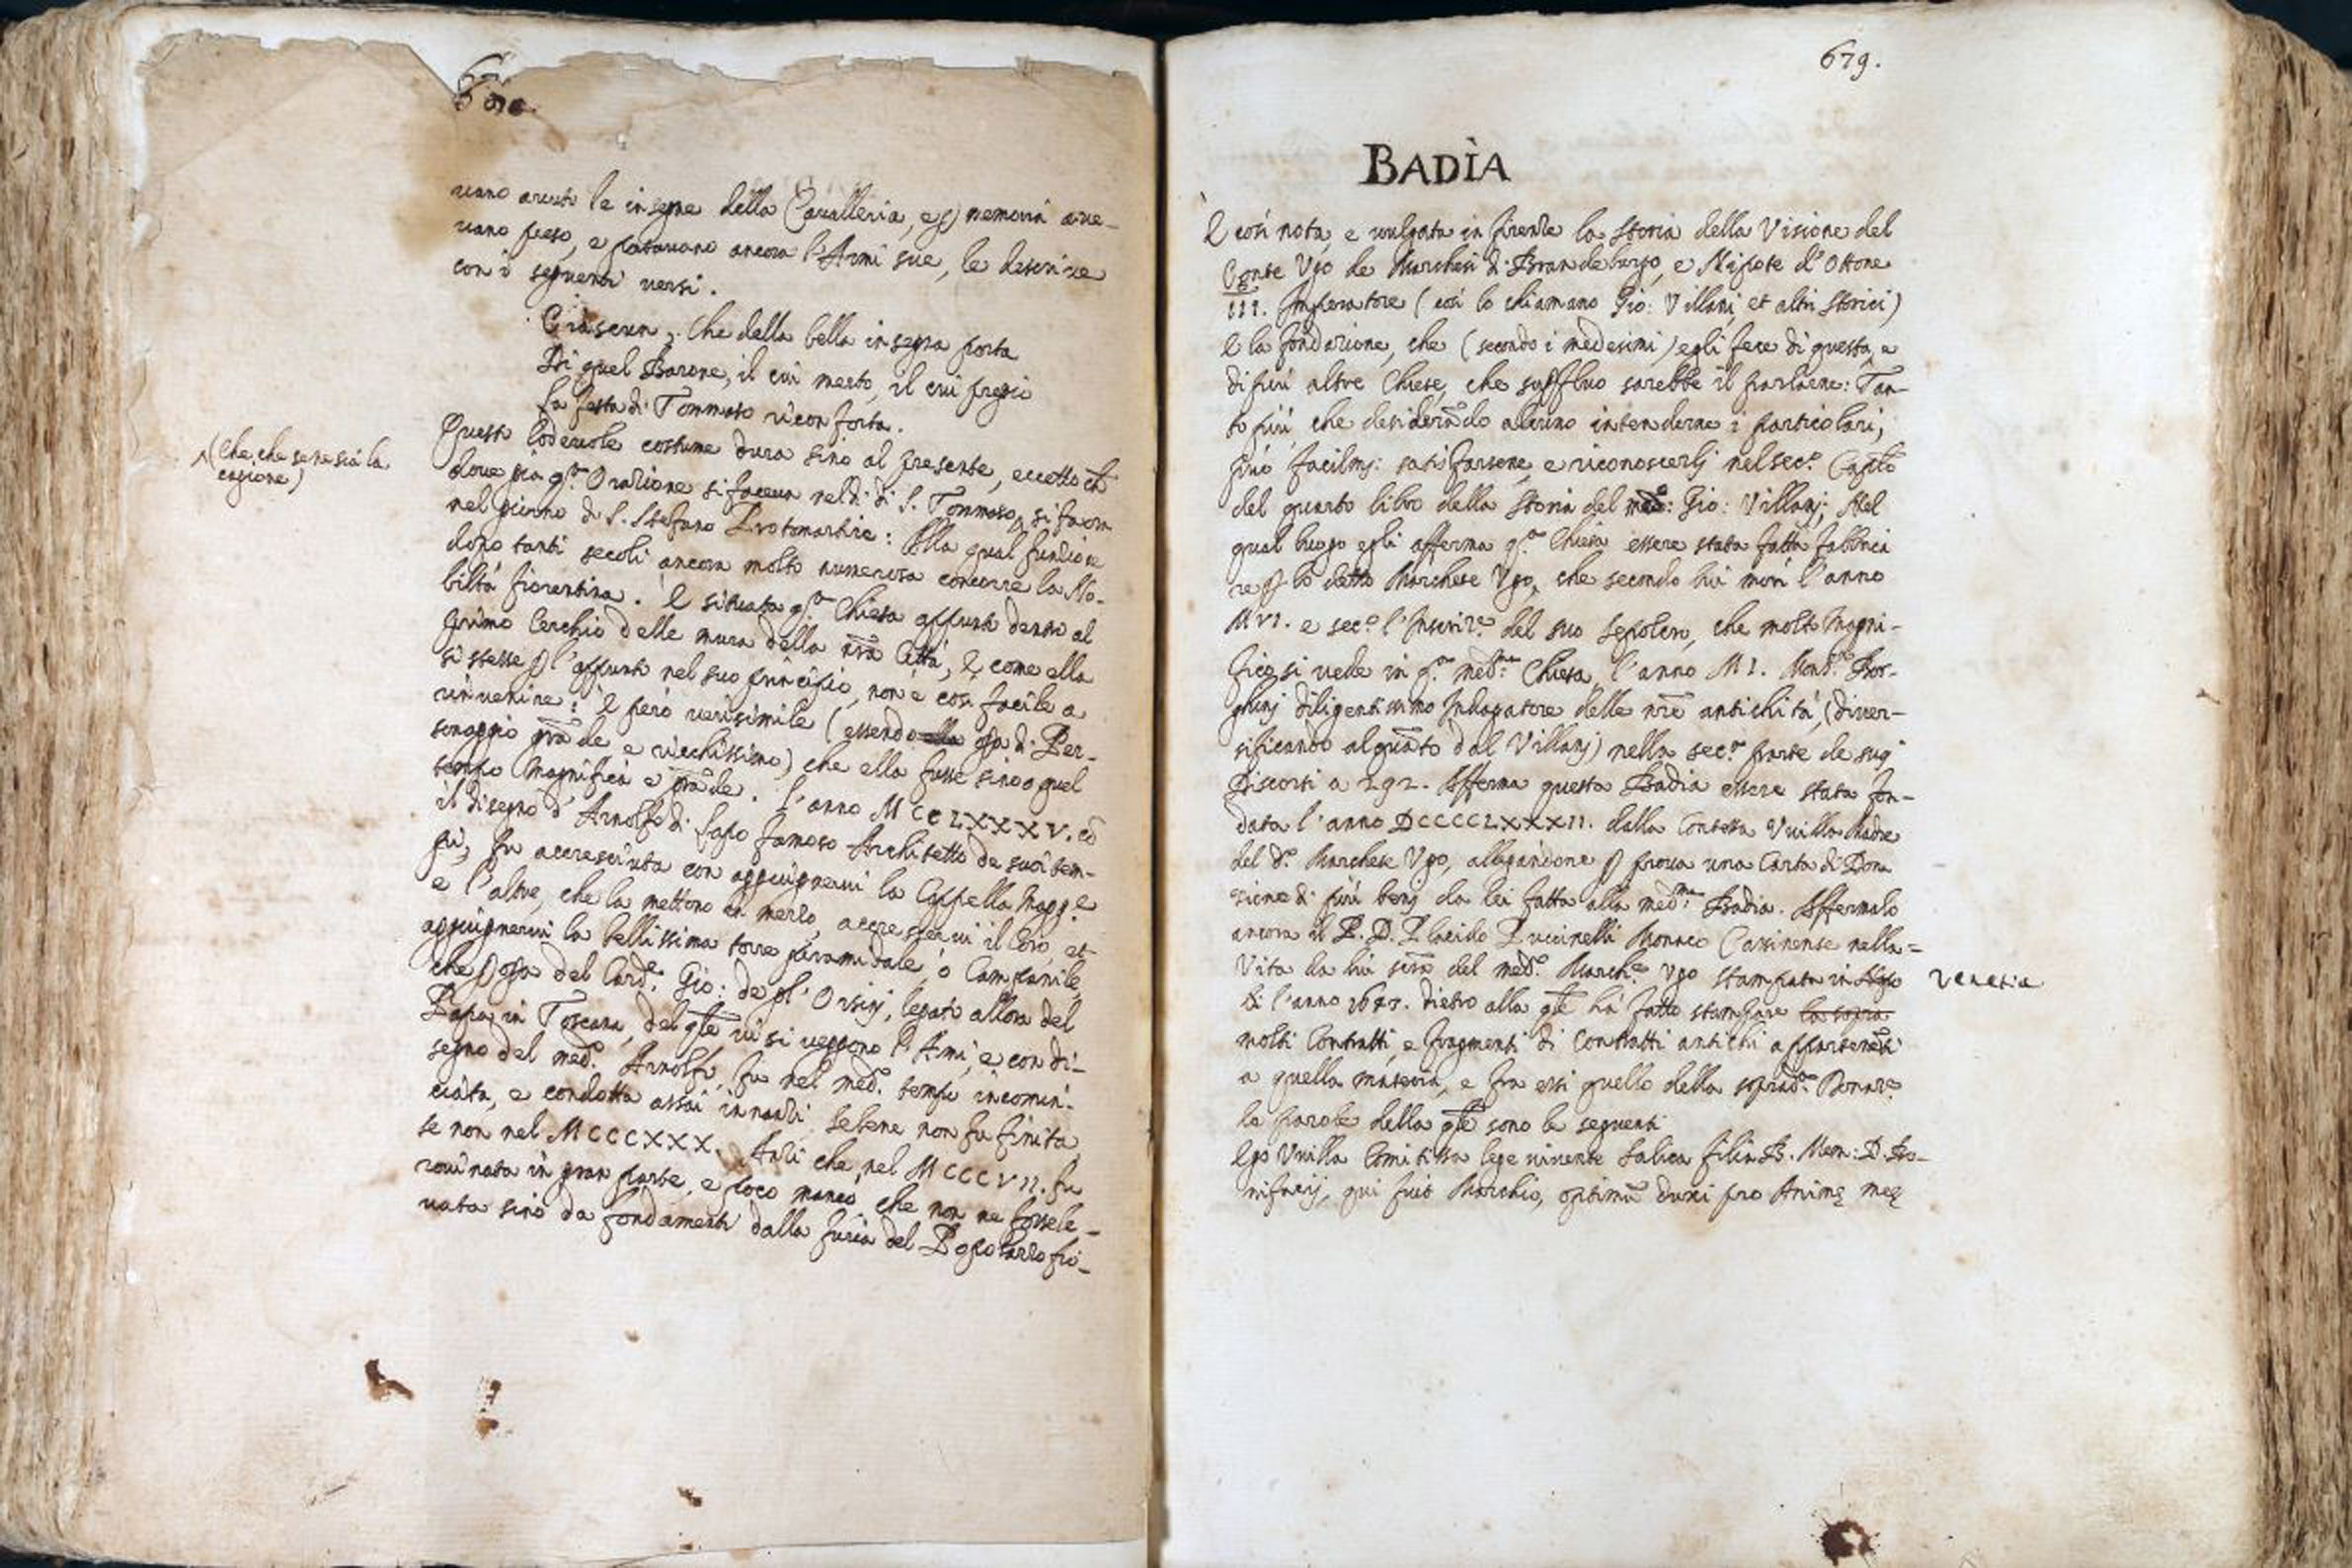 680
uano auuto le insegne della Caualleria, e p memoria aue-
uano preso, e portauano ancora l'Armi sue, le descriue
con i seguenti versi.
Ciascun, che della bella insegna porta
Di quel Barone, il cui merto, il cui pregio
La festa di Tommaso riconforta.
Questo lodeuole costume dura sino al presente, eccetto ch
doue già q.ta Orazione si faceua nel dì di S. Tommaso ^ si fa ora
^(che che se ne sia la
cagione)
nel giorno di S. Stefano Protomartire: Alla qual funzione
dopo tanti secoli ancora molto numerosa concorre la No-
biltà fiorentina. È situata q.ta Chiesa appunto dentro al
primo Cerchio delle mura della nra Città, e come ella
si stesse p l'appunto nel suo principio, non è così facile a
rinuenire: È però uerisimile (essendo ella opa di Per-
sonaggio grāde e ricchissimo) che ella fusse sino a quel
tempo magnifica e grāde. L'anno MCCLXXXV. cō
il disegno d'Arnolfo di Lapo famoso Architetto de suoi tem-
pi, fu accresciuta con aggiugnerui la Cappella Magg.e
e l'altre, che la mettono in mezzo, accrescerui il Coro, et
aggiugnerui la bellissima torre piramidale, o Campanile,
che p opa del Card.e Gio: de gl'Orsinj, legato allora del
Papa in Toscana, del qle ui si ueggono l'Armi, e con di-
segno del med.o Arnolfo, fu nel med.o tempo incomin-
ciata, e condotta assai innanzi, sebene non fu finita
se non nel MCCCXXX. Anzi che nel MCCCVII. fu
rouinata in gran parte, e poco mancò che non ne fosse le-
uata sino da fondamenti dalla furia del Popolazzo fio-
679.
BADÌA
È così nota, e uulgata in Firenze la Storia della Visione del
Conte Vgo de Marchesi di Brandeburgo, e Nipote d'Ottone
III. Imperatore (così lo chiamano Gio: Villani, et altri Storici)
e la fondazione, che (secondo i medesimi) egli fece di questa, e
di più altre Chiese, che supfluo sarebbe il parlarne: Tan-
to più, che desiderādo alcuno intenderne i particolari,
può facilm: satisfarsene, e riconoscerlj nel sec.o Caplo
del quarto libro della Storia del med: Gio: Villanj; Nel
qual luogo egli afferma q.ta Chiesa essere stata fatta fabbrica
re p lo detto Marchese Vgo, che secondo lui morì l'anno
MVI. e sec.o l'Inscriz.e del suo Sepolcro, che molto magni-
fico si uede in q.ta med.ma Chiesa, l'anno MI. Mons.r Bor-
ghinj diligentissimo Indagatore delle nre antichità, (diuer-
sificando alquāto dal Villanj) nella sec.a parte de suoj
Discorsi a 292. Afferma questa Badia essere stata fon-
data l'anno DCCCCLXXXII. dalla Contessa Vuilla Madre
del d.o Marchese Vgo, allegandone p proua una Carta di Dona
zione di più benj da lei fatta alla med.ma Badia. Affermalo
ancora il P. D. Placido Puccinelli Monaco Cassinense nella=
Vita da lui scra del med.o March.e Vgo stampata in
Venezia
l'anno 1643. dietro alla qle ha fatto stampare la sopra
molti Contratti, e fragmenti di Contratti antichi appartenēti
a quella materia, e fra essi quello della soprad.a Donaz.e
le parole della qle sono le seguenti
Ego Vuilla Comitissa lege uiuente Salica filia B. Mem: D. Bo-
nifacij, qui fuit Marchio, optimū duxi pro Animę meę